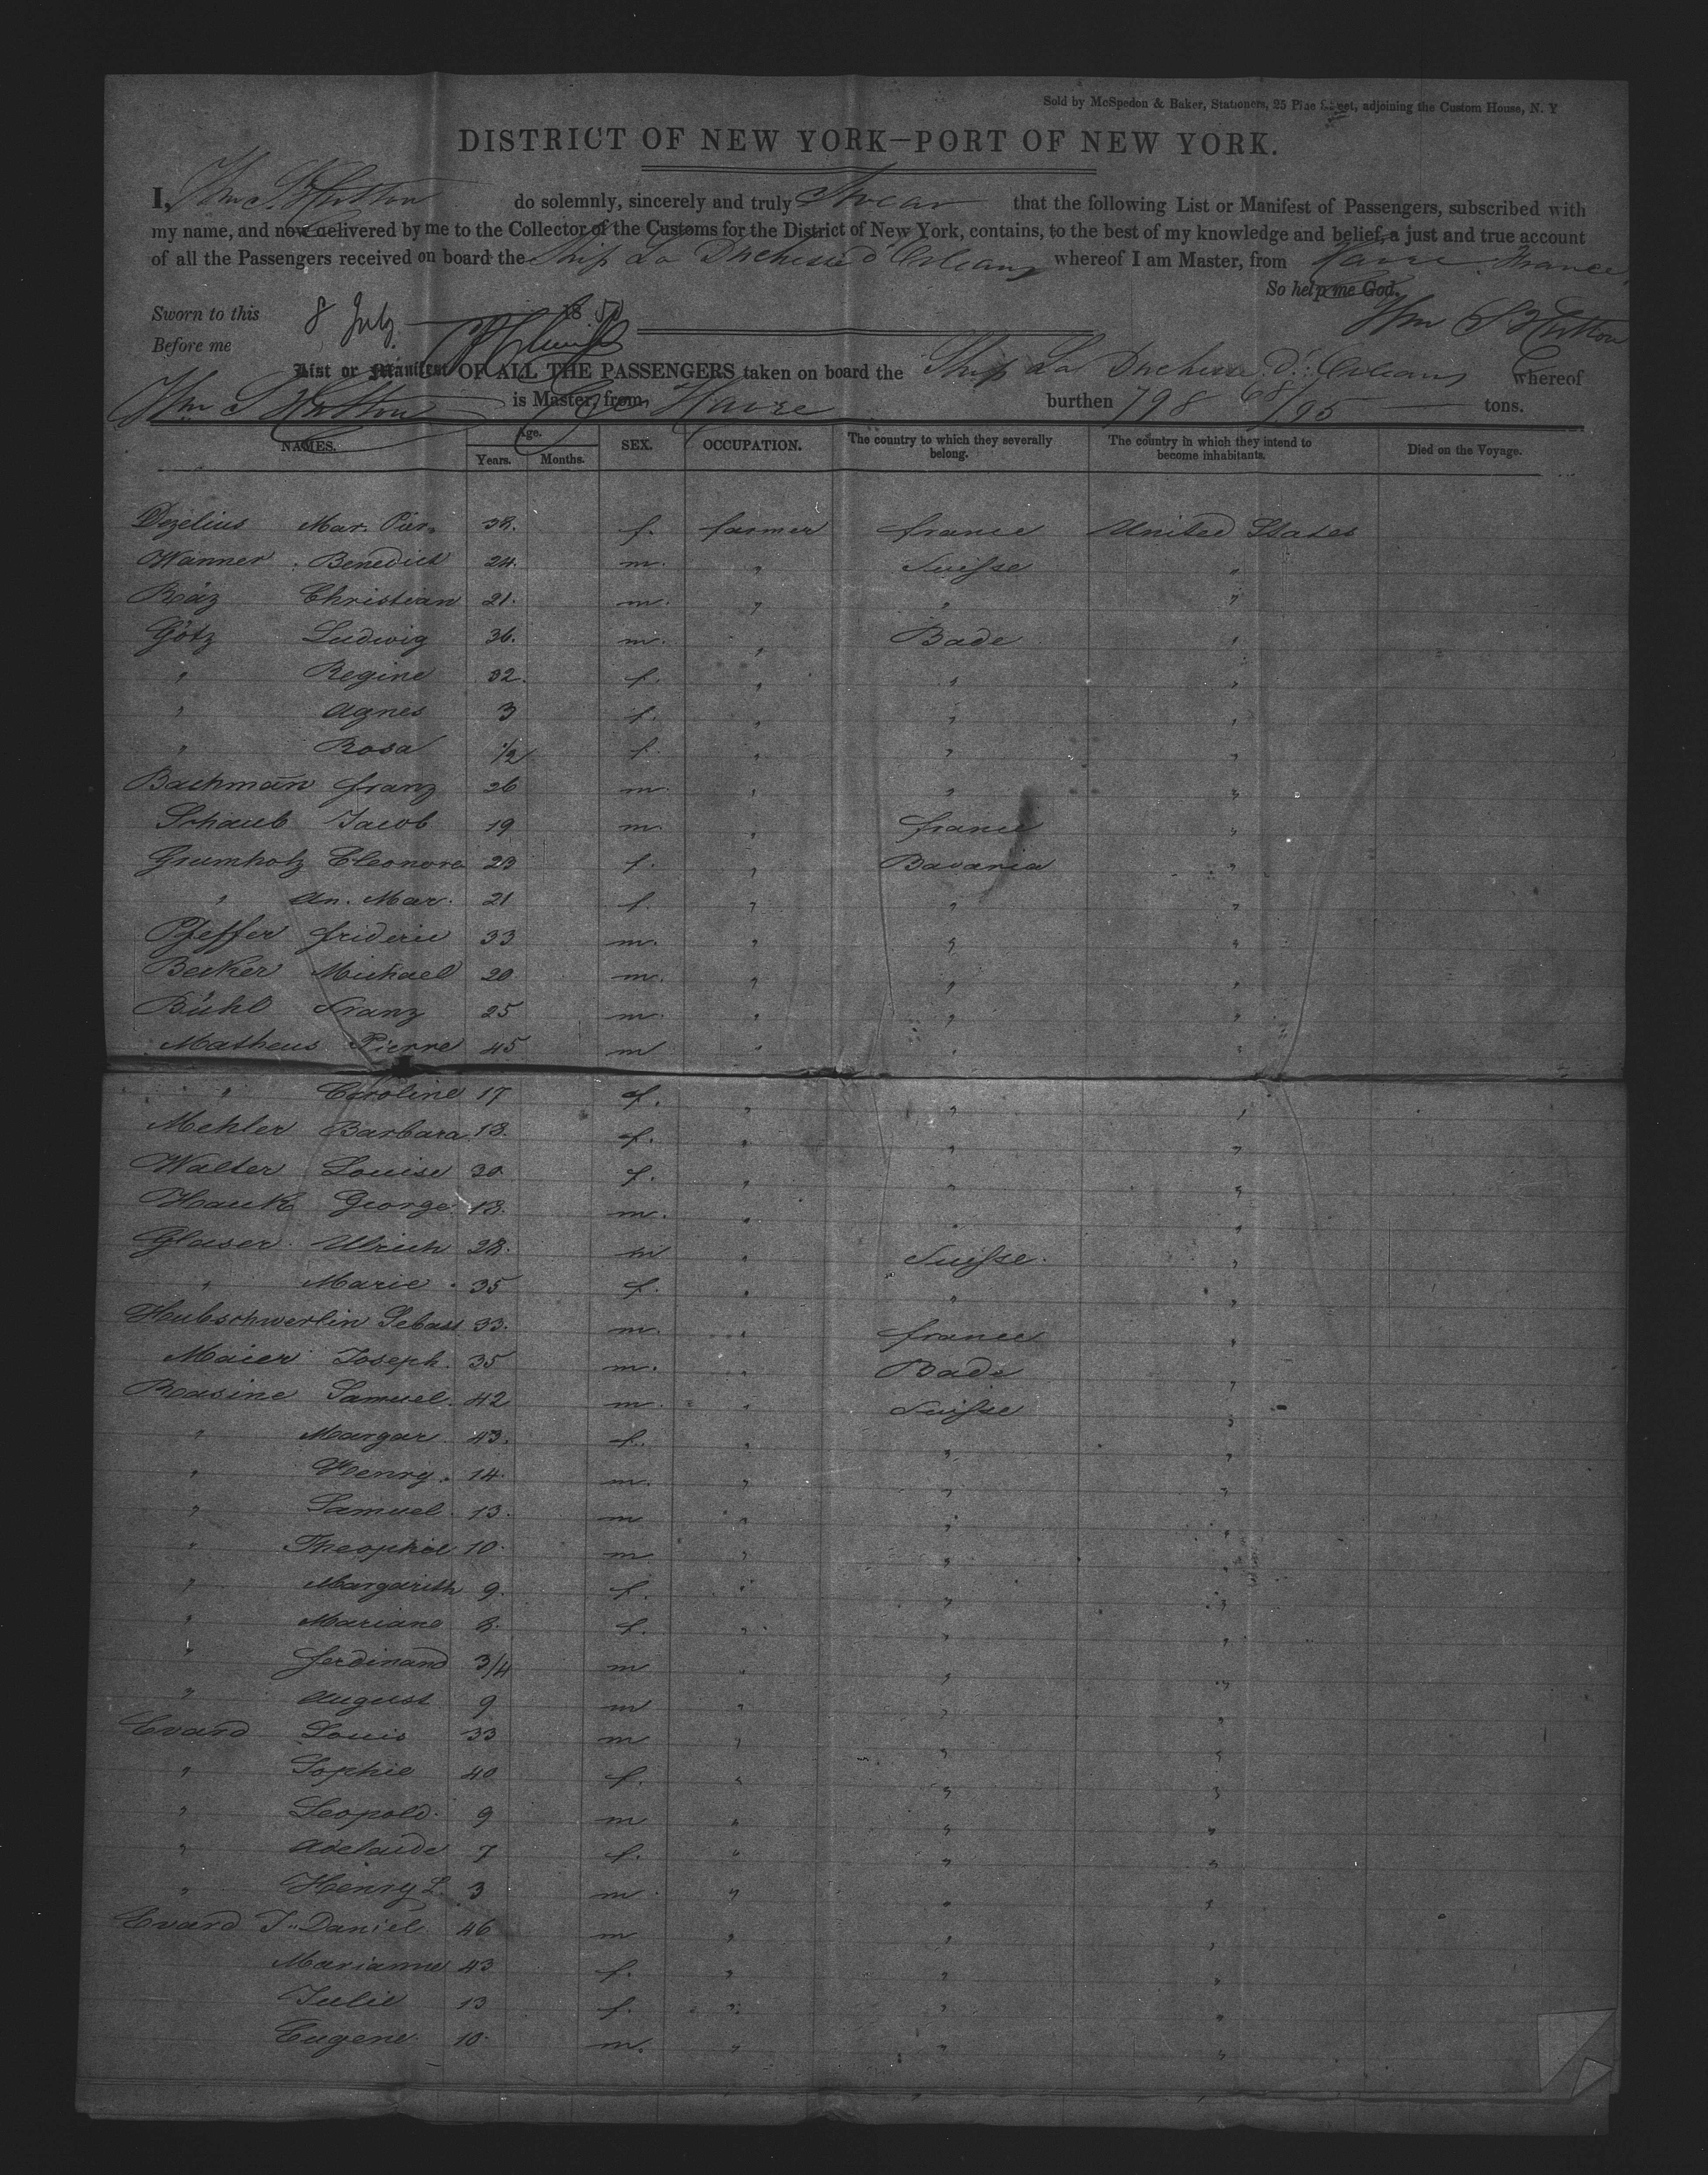 Sold by McSpedon & Baker, Stationers, 25 Pine Street, adjoining the Custom House, N. Y
DISTRICT OF NEW YORK—PORT OF NEW YORK.
I, Wm S. Hutton do solemnly, sincerely and truly Swear that the following List or Manifest of Passengers, subscribed with
my name, and now delivered by me to the Collector of the Customs for the District of New York, contains, to the best of my knowledge and belief, a just and true account
of all the Passengers received on board the Ship La Duchesse d'Orleans whereof I am Master, from Havre France
So help me God.
Sworn to this 8 July 18
Wm S Hutton
Before me
List or Manifest OF ALL THE PASSENGERS taken on board the Ship La Duchesse d'Orleans whereof
Wm S Hutton is Master, from Havre burthen 798 68/95 tons.
NAMES. Age. Years. Months. SEX. OCCUPATION. The country to which they severally belong. The country in which they intend to become inhabitants. Died on the Voyage.
Dezelius Mar. 38. f. farmer france United States
Wanner Benedict 24. m. " Suisse "
Räz Christian 21. m. " " "
Götz Ludwig 36. m. " Bade "
" Regine 32. f. " " "
" Agnes 3 f. " " "
" Rosa 1/2 f. " " "
Bachman̄ franz 26 m. " " "
Schaub Jacob 19 m. " france "
Grumholz Eleonora 23 f. " Bavaria "
" An. Mar. 21 f. " " "
Pfeffer frideric 33 m. " " "
Becker Michael 20 m. " " "
Bühl franz 25 m. " " "
Matheus Pierre 45 m " " "
" Caroline 17 f. " " "
Mehler Barbara 18. f. " " "
Walter Louise 30 f. " " "
Hauk George 18. m. " " "
Glaser Ulrich 28. m " Suisse. "
" Marie 35 f. " " "
Hubschwerlin Sebast 33. m. " france "
Maier Joseph. 35 m. " Bade "
Rasine Samuel. 42 m. " Suisse "
" Margar. 43. f. " " "
" Henry. 14. m. " " "
" Samuel. 13. m " " "
" Theophile 10. m " " "
" Margarith 9. f. " " "
" Mariane 8. f. " " "
" ferdinand 3/4 m " " "
" August 9 m " " "
Evard Louis 33 m " " "
" Sophie 40 f. " " "
" Leopold. 9 m " " "
" Adelaide 7 f. " " "
" Henry L. 3 m. " " "
Evard J. Daniel 46 m " " "
Marianne 43 f. " " "
Julie 13 f. " " "
Eugene. 10. m. " " "